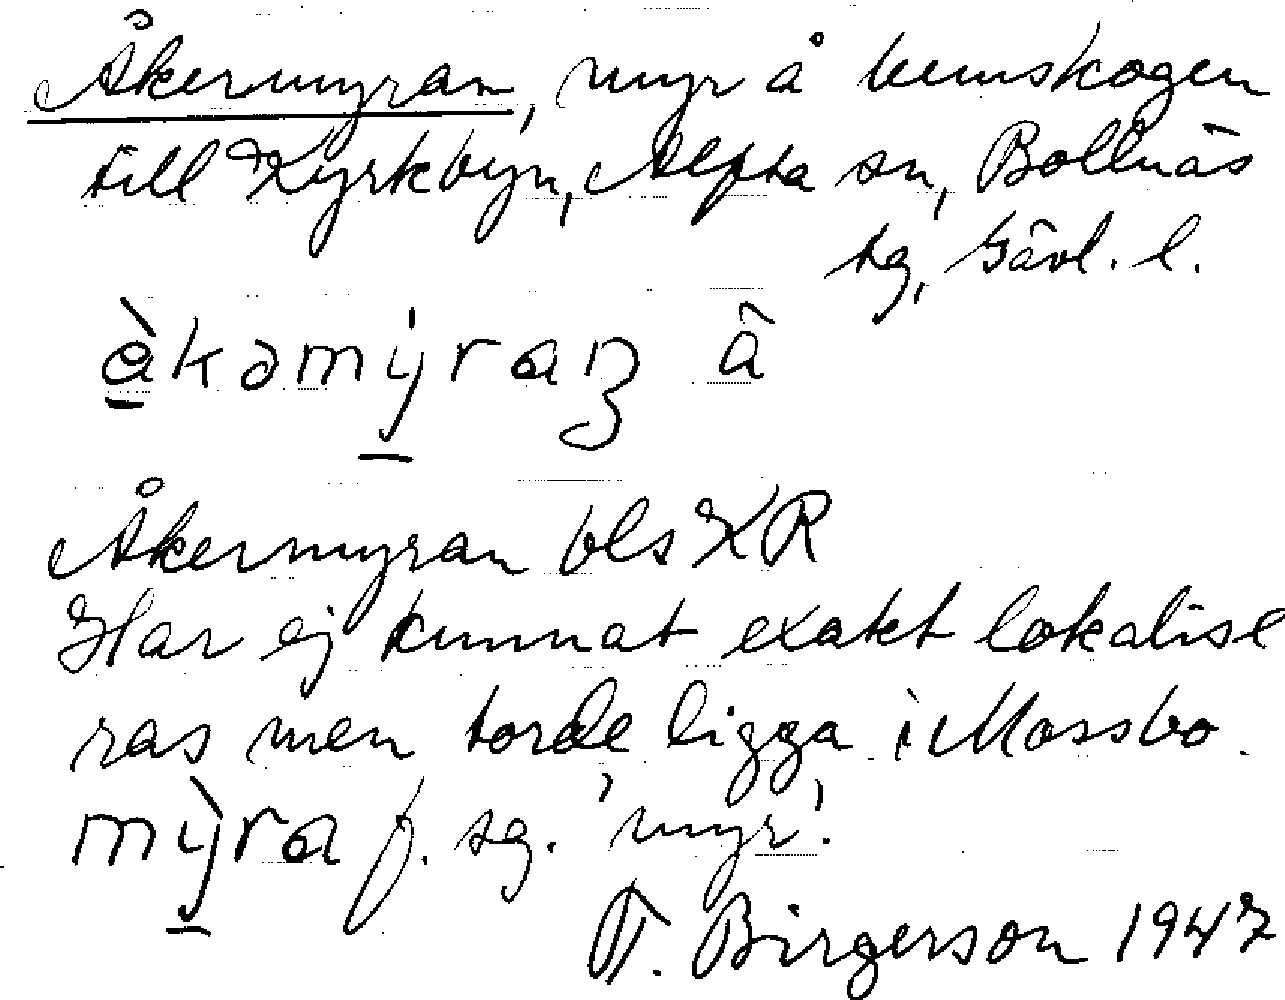 Åkermyran, myr å hemskogen
till Kyrkbyn, Alfta sn, Bollnäs
tg, Gävl. l.
àkəmýraɲ â
Åkermyran bls KR
Har ej kunnat exakt lokalise
ras men torde ligga i Mossbo.
mỳra f. sg. 'myr'.
T. Birgerson 1947